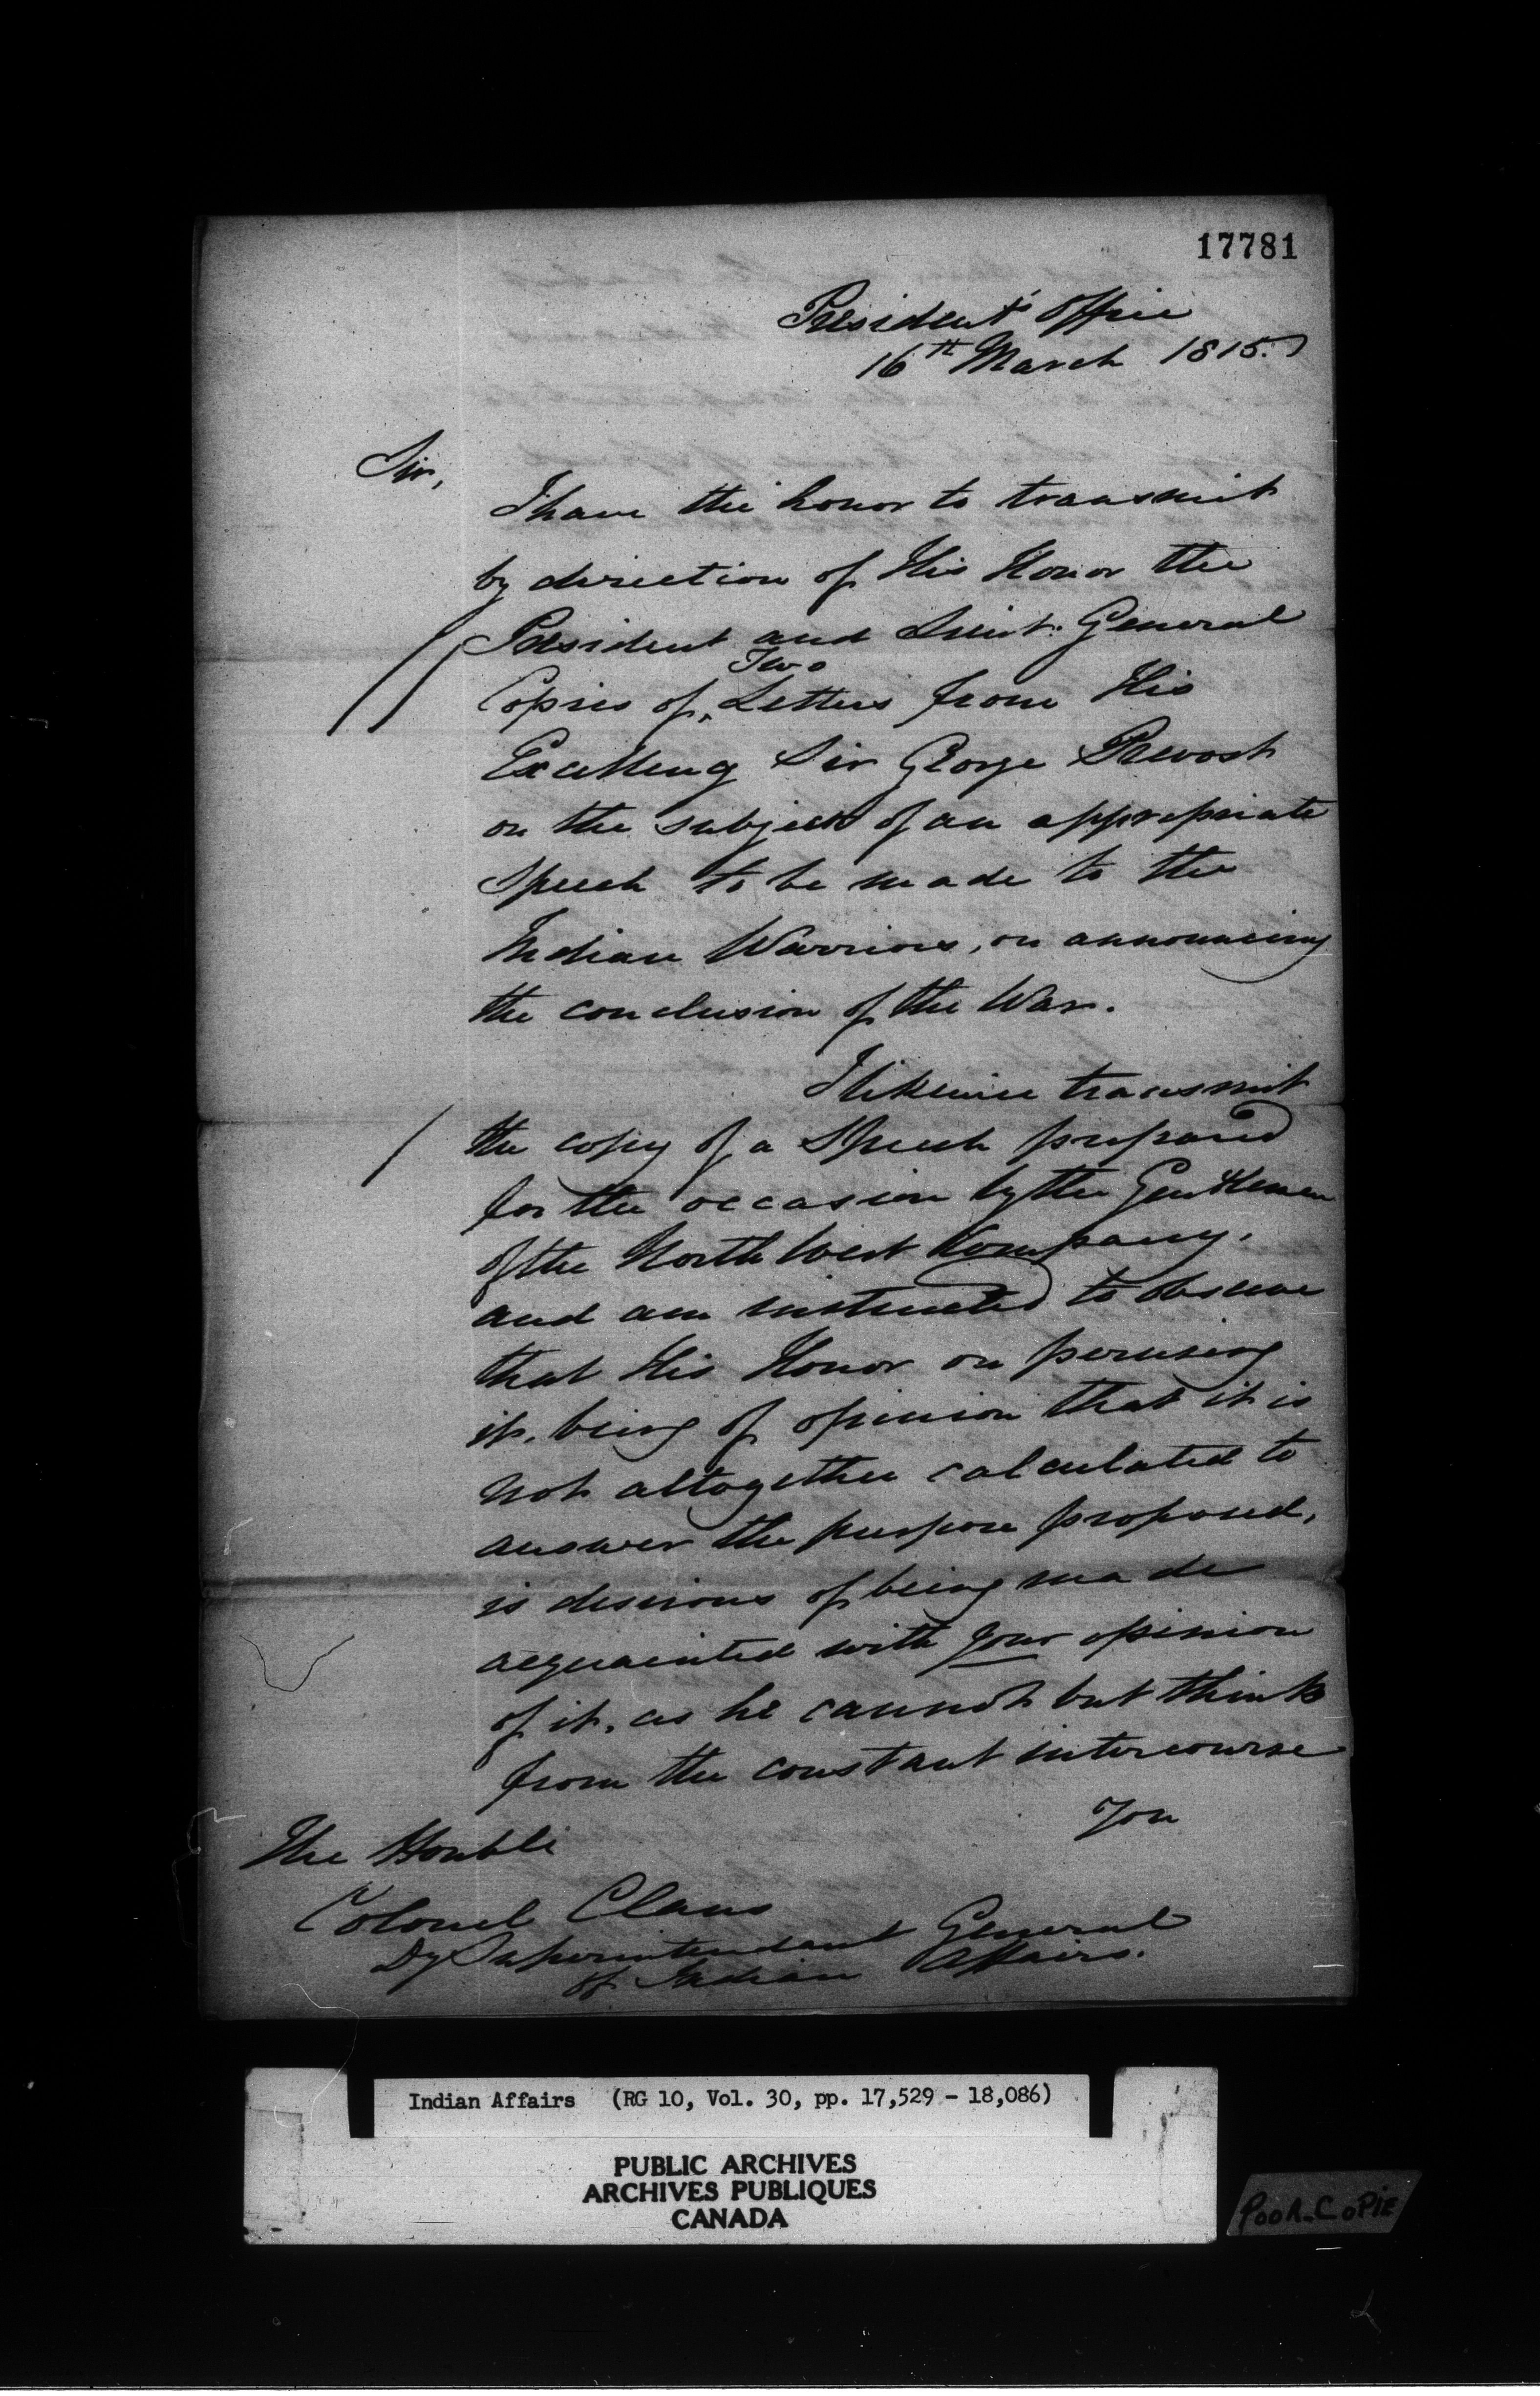 17781
President's Office
16th March 1815.
Sir,
I have the honor to transmit
by direction of His Honor the
President and Lieut: General
Two
Copies of, Letters from His
Excellency Sir George Prevost
on the subject of an appropriate
Speech to be made to the
Indian Warriors, on announcing
the conclusion of the War.
I likewise transmit
the copy of a Speech prepared
for the occasion by the Gentlemen
of the North West Company,
and am instructed to observe
that His Honor on perusing
it, being of opinion that it is
not altogether calculated to
answer the purpose proposed,
is desirous of being made
acquainted with your opinion
of it, as he cannot but think
from the constant intercourse
You
The Honble
Colonel Claus
Dy Superintendant General
of Indian Affairs.
Indian Affairs (RG 10, Vol. 30, pp. 17,529 - 18,086)
PUBLIC ARCHIVES
ARCHIVES PUBLIQUES
CANADA
POOR COPIE